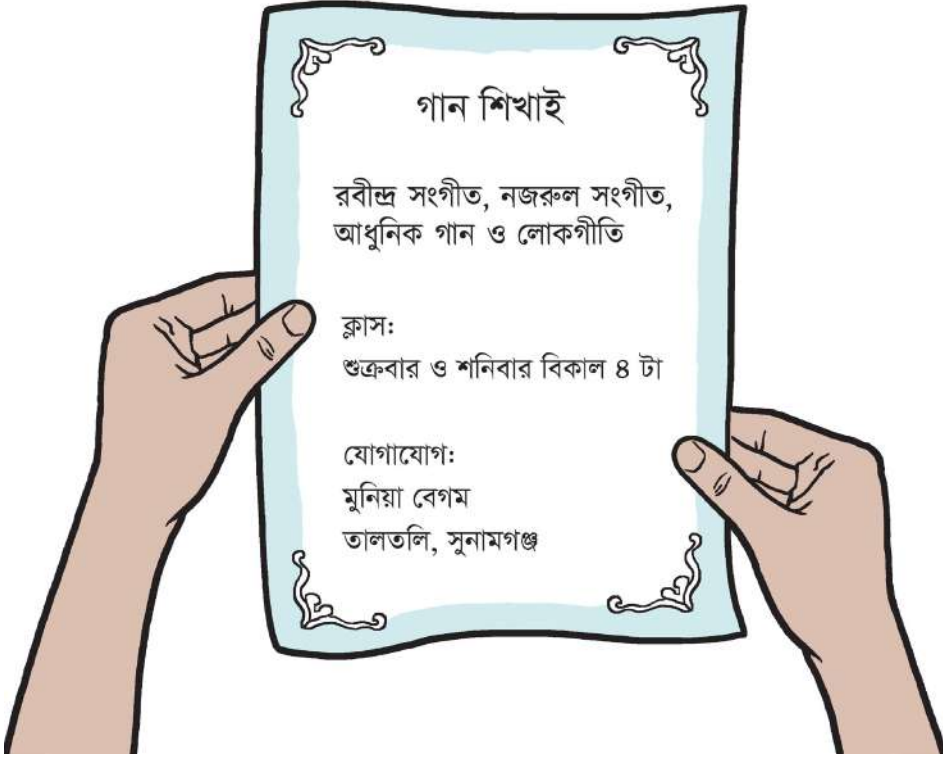 গান শিখাই
রবীন্দ্র সংগীত, নজরুল সংগীত,
আধুনিক গান ও লোকগীতি
ক্লাস:
শুক্রবার ও শনিবার বিকাল ৪ টা
যোগাযোগ:
মুনিয়া বেগম
তালতলি, সুনামগঞ্জ